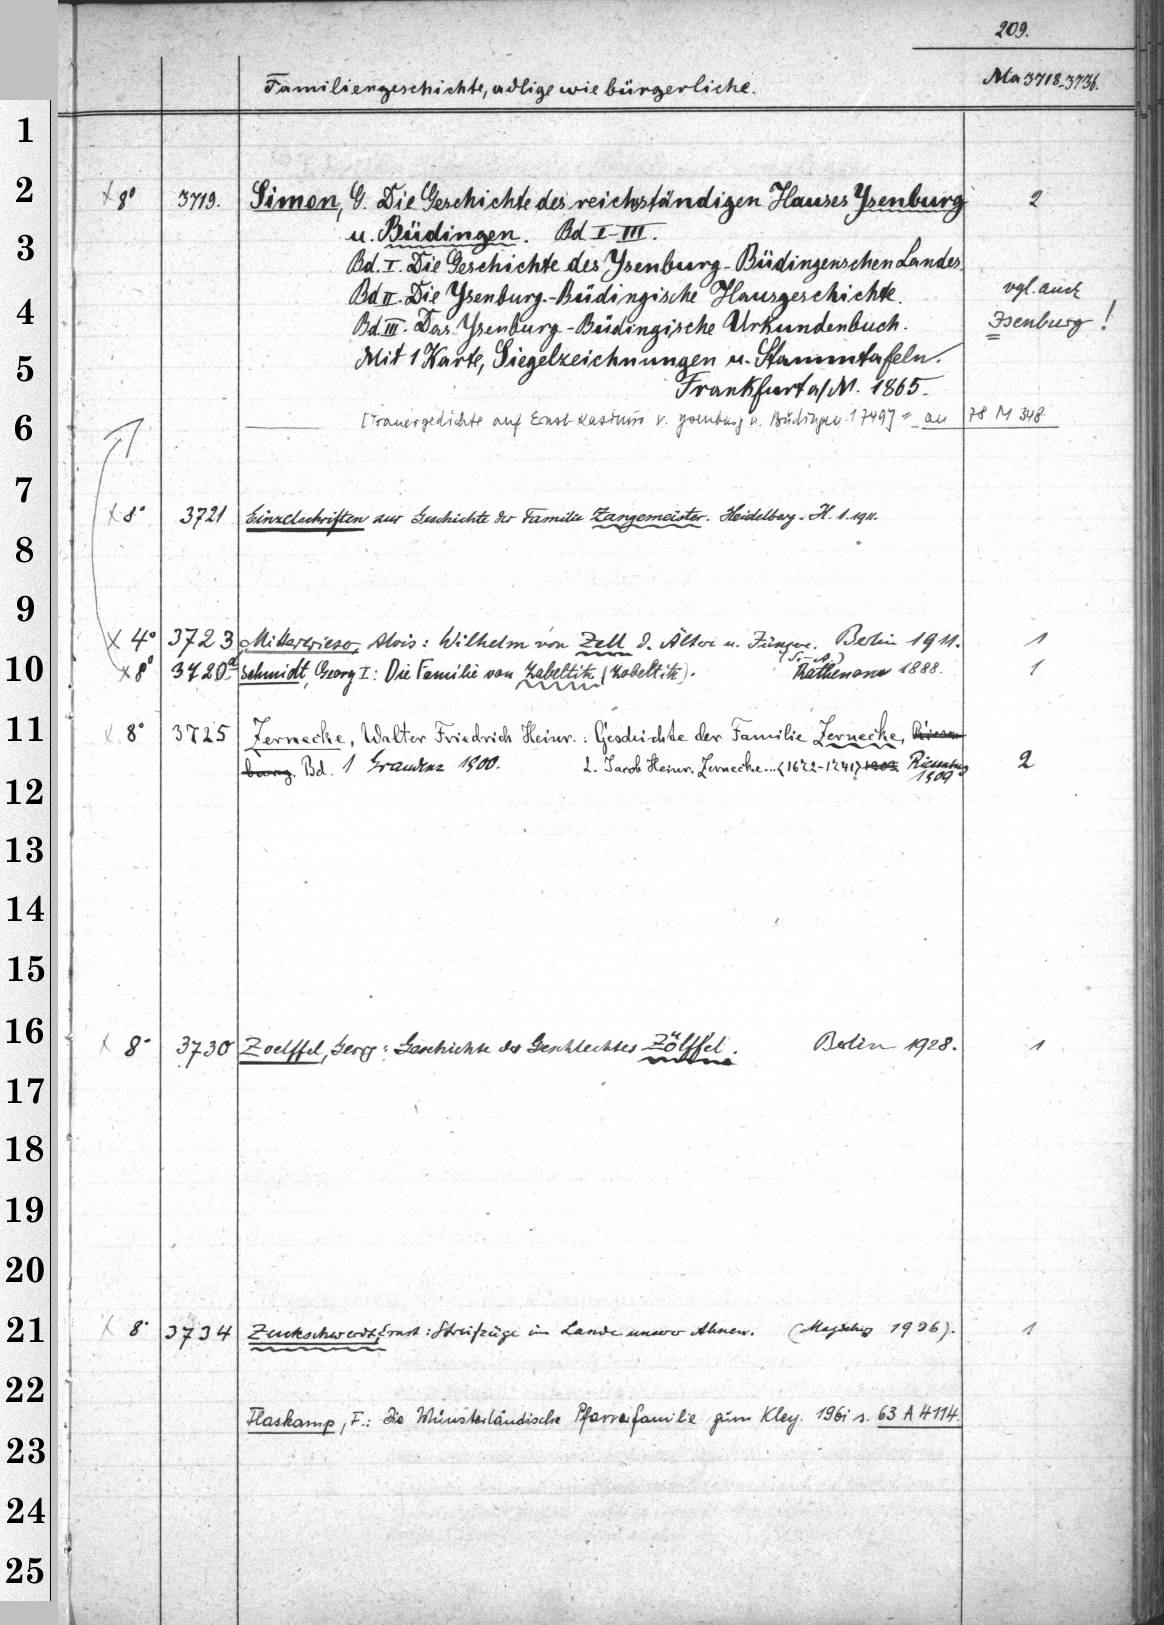 209.
Familiengeschichte, adlige wie bürgerliche. Ma 3718-3736.
1
2 x 8° 3719. Simon, G. Die Geschichte des reichsständigen Hauses Ysenburg 2
3 u. Büdingen. Bd I-III.
Bd. I. Die Geschichte des Ysenburg-Büdingenschen Landes.
4 Bd II. Die Ysenburg-Büdingische Hausgeschichte. vgl. auch
Bd III. Das Ysenburg-Büdingische Urkundenbuch. Isenburg!
5 Mit 1 Karte, Siegelzeichnungen u. Stammtafeln.
Frankfurt a/M. 1865.
6 [Trauergedichte auf Ernst Kasimir v. Ysenburg u. Büdingen 1749] = an 78 M 348
7
x 8° 3721 Einzelschriften zur Geschichte der Familie Zangemeister. Heidelberg - H. 1. 1911.
8
9
x 4° 3723 Mitterwieser, Alois: Wilhelm von Zell d. Ältere u. Jüngere. Berlin 1911. 1
10 x 8° 3720a Schmidt, Georg I: Die Familie von Zabeltitz (Zobeltitz). Rathenow 1888. 1
11 x 8° 3725 Zernecke, Walter Friedrich Heinr.: Geschichte der Familie Zernecke, Riesen-
burg. Bd. 1 Graudenz 1900. 2. Jacob Heinr. Zernecke... (1672-1741) 1909 Riesenburg 2
1909
12
13
14
15
16 x 8° 3730 Zoelffel, Georg: Geschichte des Geschlechtes Zölffel. Berlin 1928. 1
17
18
19
20
21 x 8° 3734 Zuckschwerdt, Ernst: Streifzüge im Lande unserer Ahnen. (Magdeburg 1936). 1
22
Flaskamp, F.: Die Münsterländische Pfarrerfamilie zum Kley. 1961 s. 63 A 4114.
23
24
25